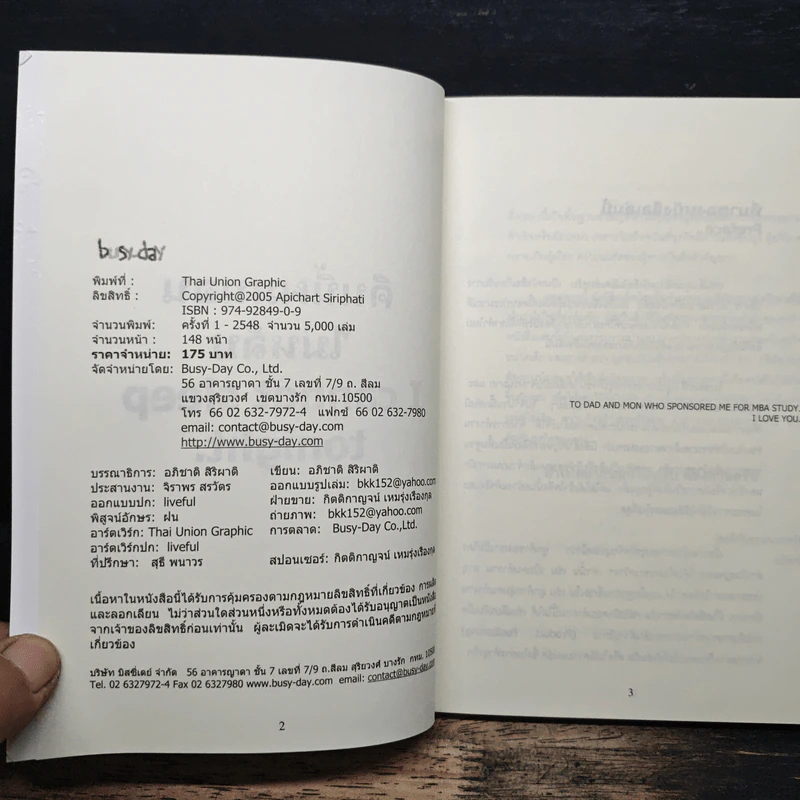 busy-day
พิมพ์ที่ : Thai Union Graphic
ลิขสิทธิ์ : Copyright@2005 Apichart Siriphati
ISBN : 974-92849-0-9
จำนวนพิมพ์: ครั้งที่ 1 - 2548 จำนวน 5,000 เล่ม
จำนวนหน้า : 148 หน้า
ราคาจำหน่าย: 175 บาท
จัดจำหน่ายโดย: Busy-Day Co., Ltd.
56 อาคารญาดา ชั้น 7 เลขที่ 7/9 ถ. สีลม
แขวงสุริยวงศ์ เขตบางรัก กทม.10500
โทร 66 02 632-7972-4 แฟกซ์ 66 02 632-7980
email: contact@busy-day.com
http://www.busy-day.com
บรรณาธิการ: อภิชาติ สิริผาติ เขียน: อภิชาติ สิริผาติ
ประสานงาน: จิราพร สรวัตร ออกแบบรูปเล่ม: bkk152@yahoo.com
ออกแบบปก: liveful ฝ่ายขาย: กิตติกาญจน์ เหมรุ่งเรืองกุล
พิสูจน์อักษร: ฝน ถ่ายภาพ: bkk152@yahoo.com
อาร์ตเวิร์ก: Thai Union Graphic การตลาด: Busy-Day Co.,Ltd.
อาร์ตเวิร์กปก: liveful
ที่ปรึกษา: สุธี พนาวร สปอนเซอร์: กิตติกาญจน์ เหมรุ่งเรืองกุ
เนื้อหาในหนังสือนี้ได้รับการคุ้มครองตามกฎหมายลิขสิทธิ์ที่เกี่ยวข้อง
และลอกเลียน ไม่ว่าส่วนใดส่วนหนึ่งหรือทั้งหมดต้องได้รับอนุญาตเป็นหนังสือ
จากเจ้าของลิขสิทธิ์ก่อนเท่านั้น ผู้ละเมิดจะได้รับการดำเนินคดีตามกฎหมายที่
เกี่ยวข้อง
บริษัท บิสซี่เดย์ จำกัด 56 อาคารญาดา ชั้น 7 เลขที่ 7/9 ถ.สีลม สุริยวงศ์ บางรัก กทม. 10500
Tel. 02 6327972-4 Fax 02 6327980 www.busy-day.com email: contact@busy-day.com
2
TO DAD AND MON WHO SPONSORED ME FOR MBA STUDY.
I LOVE YOU.
3